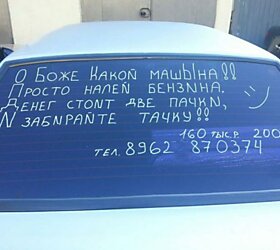 О Боже какой машына!!
Просто налей бензина.
Денег стоит две пачки,
И забирайте тачку!!
160 тыс.р 200
тел. 8962 870374